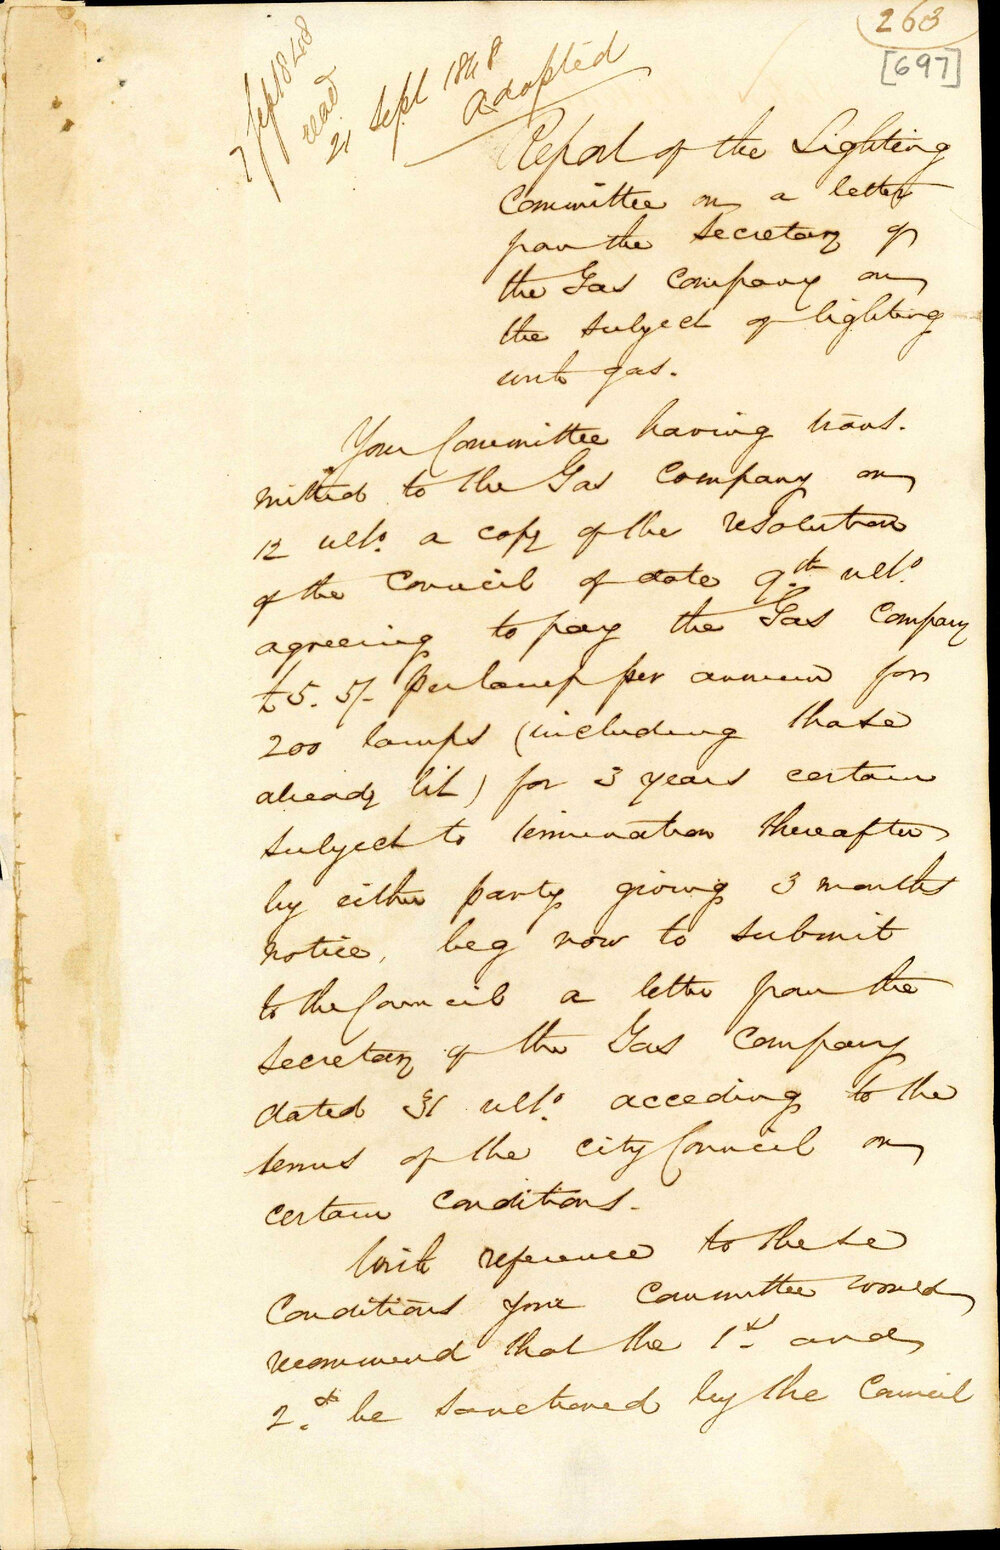 263
[697]
7 Sep 1848
read
21 Sept 1848
Adopted
Report of the Lighting
Committee on a letter
from the Secretary of
the Gas Company on
the subject of lighting
with gas.
Your Committee having trans.
mitted to the Gas Company on
12 ulto. a copy of the resolution
of the Council of date 9th ulto.
agreeing to pay the Gas Company
£5. 5/- per lamp per annum for
200 lamps (including those
already lit) for 3 years certain
subject to termination thereafter
by either party giving 3 months
notice, beg now to submit
to the Council a letter from the
Secretary of the Gas Company
dated 31 ulto. acceding to the
terms of the City Council on
certain conditions.
With reference to these
Conditions your Committee would
recommend that the 1st and
2d be sanctioned by the Council